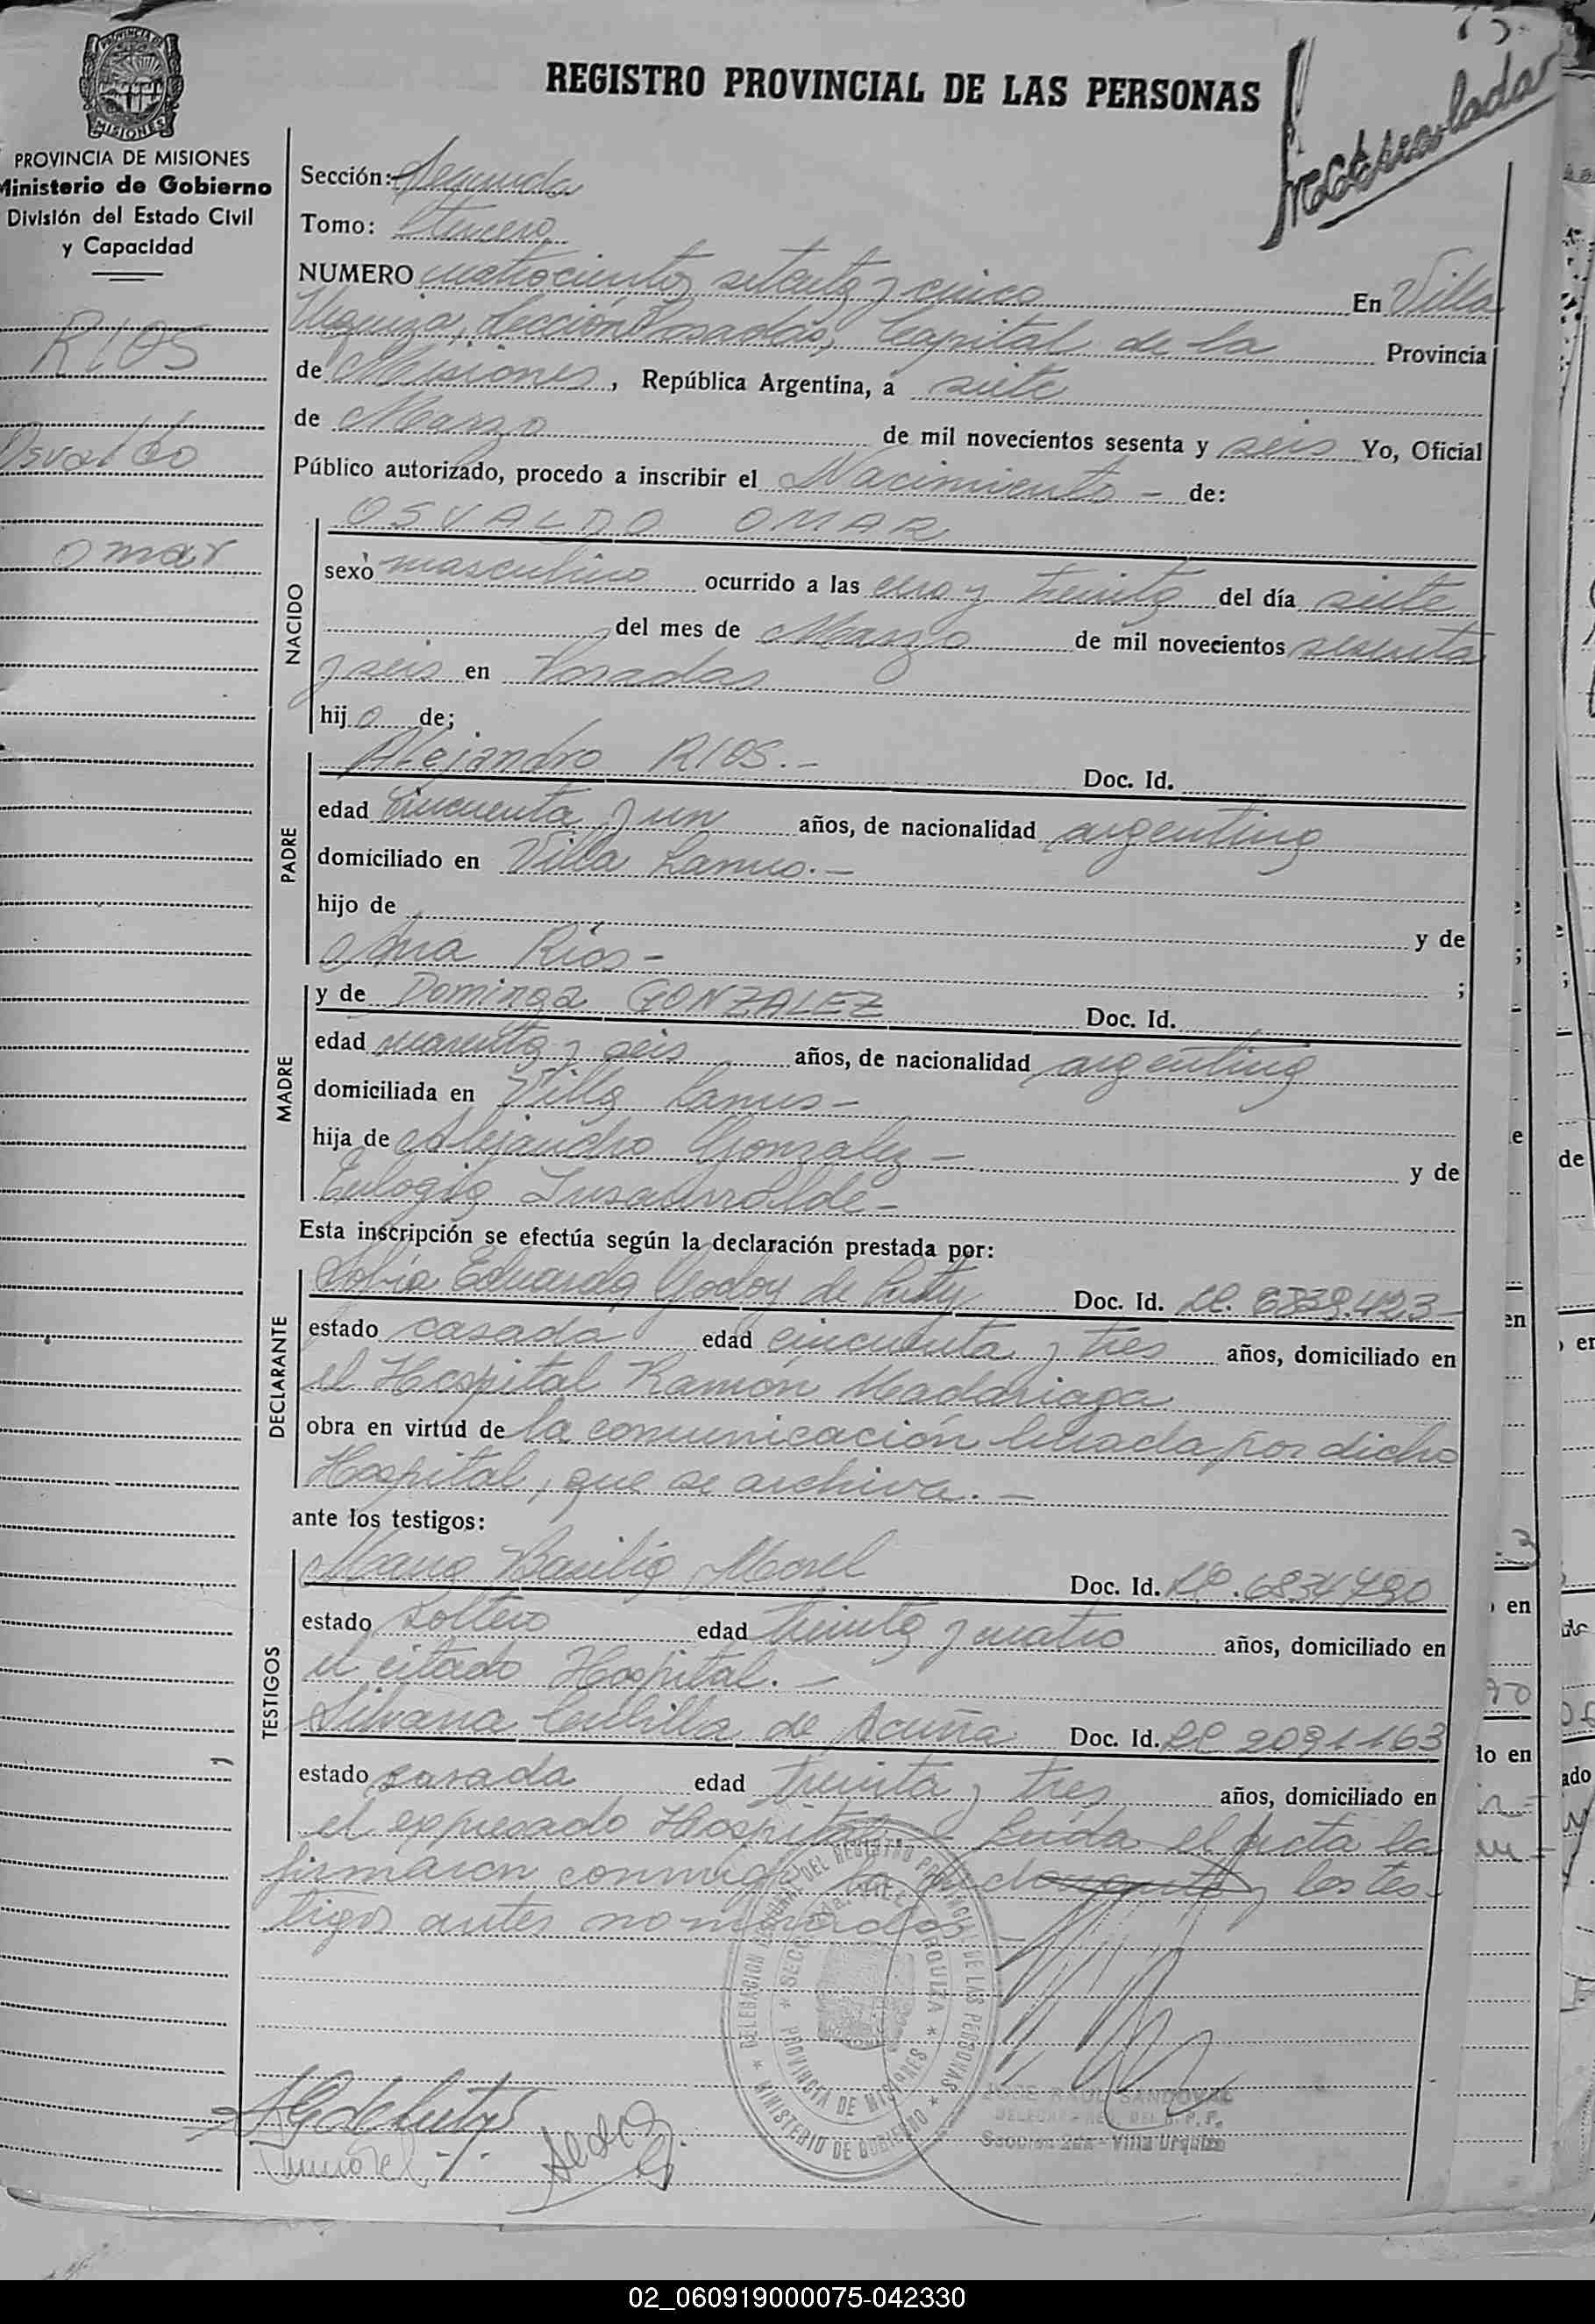 75.
Matriculado
PROVINCIA DE MISIONES
REGISTRO PROVINCIAL DE LAS PERSONAS
PROVINCIA DE MISIONES
Ministerio de Gobierno
División del Estado Civil
y Capacidad
RIOS
Osvaldo
Omar
Sección: Segunda
Tomo: tercero
NUMERO cuatrocientos setenta y cinco En Villa
Urquiza, Sección Posadas, Capital de la Provincia
de Misiones, República Argentina, a siete
de Marzo de mil novecientos sesenta y seis Yo, Oficial
Público autorizado, procedo a inscribir el Nacimiento - de:
NACIDO
OSVALDO OMAR
sexo masculino ocurrido a las cero y treinta del día siete
del mes de Marzo de mil novecientos sesenta
y seis en Posadas
hijo de;
PADRE
Alejandro RIOS.- Doc. Id.
edad cincuenta y un años, de nacionalidad argentina
domiciliado en Villa Lanus.-
hijo de y de
Ana Ríos - ;
MADRE
y de Dominga GONZALEZ Doc. Id.
edad cuarenta y seis años, de nacionalidad argentina
domiciliada en Villa Lanus -
hija de Alejandro Gonzalez - y de
Eulogia Insaurralde -
Esta inscripción se efectúa según la declaración prestada por:
DECLARANTE
Eduarda Godoy de Doc. Id. LC. 6839.423-
estado casada edad cincuenta y tres años, domiciliado en
el Hospital Ramón Madariaga
obra en virtud de la comunicación librada por dicho
Hospital, que se archiva.-
ante los testigos:
TESTIGOS
Basilio Morel Doc. Id. 6834790
estado soltero edad treinta y cuatro años, domiciliado en
el citado Hospital.-
Silvana Cubilla de Acuña Doc. Id. LC 2091163
estado casada edad treinta y tres años, domiciliado en
el expresado Hospital - Leída el acta la
firmaron conmigo los tes-
tigos antes nombrados -
DELEGACION REGIONAL DEL REGISTRO PROVINCIAL DE LAS PERSONAS * MINISTERIO DE GOBIERNO *
* SECC. VILLA URQUIZA * PROVINCIA DE MISIONES
RAUL SANDOVAL
Sección 2da - Villa Urquiza
02_060919000075-042330